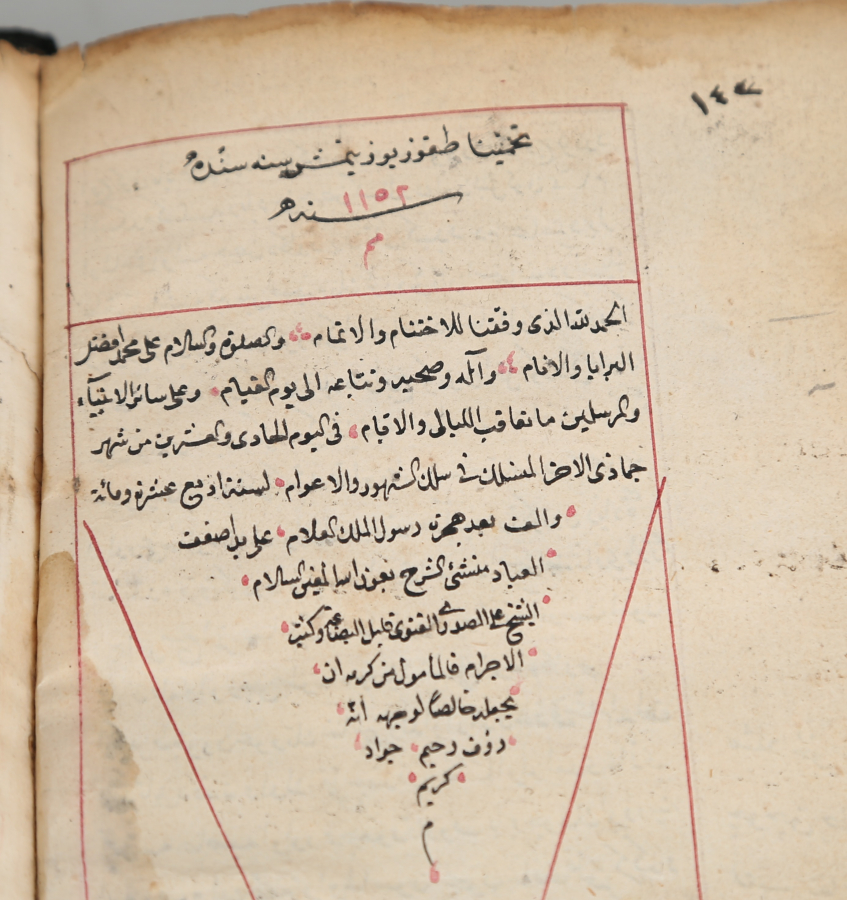 ١٤٣
تخمينا طقوز يوز يتمش سنه سنده
سنه ١١٥٢
م
الحمد لله الذى وفقنا للاختتام والاتمام والصلوة والسلام على محمد افضل
البرايا والانام وآله وصحبه وتباعه الى يوم القيام وعلى سائر الانبيآء
والمرسلين ما تعاقب الليالى والايام فى اليوم الحادى والعشرين من شهر
جماذى الاخر المنسلك فى سلك الشهور والاعوام لسنة اربع عشرة ومائة
والف بعد هجرة رسول الملك العلام على يد اضعف
العباد منشئ الشرح بعون الله المعين السلام
الشيخ على الصدرى القنوى قليل البضاعة وكثير
الاجرام فالمأمول من كرمه ان
يجعله خالصًا لوجهه انه
رؤف رحيم جواد
كريم
م